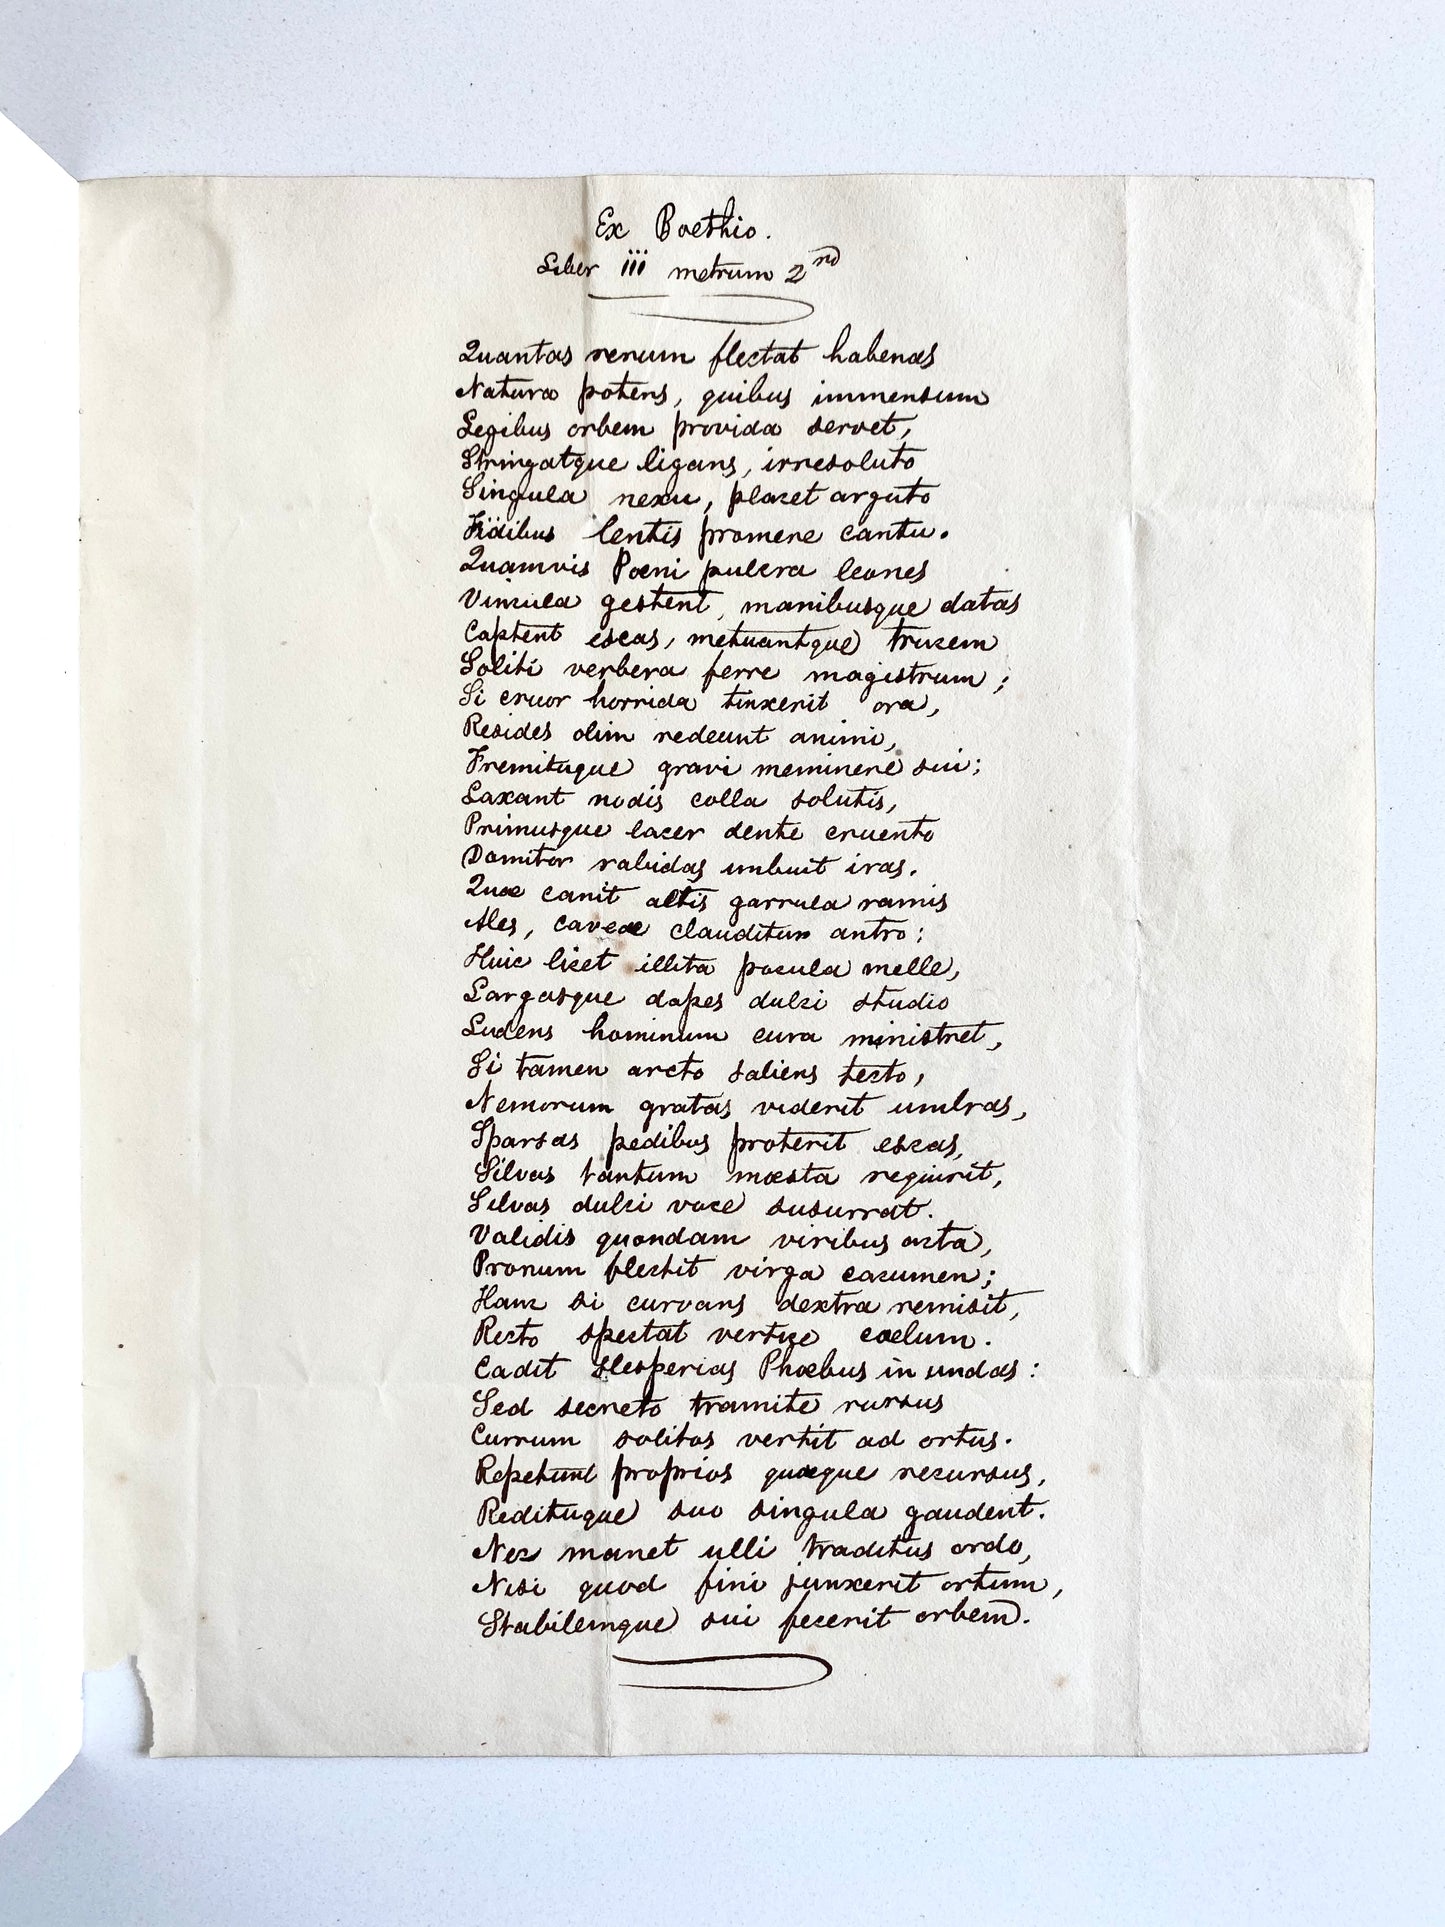 Ex Boethio.
Liber iii metrum 2nd
Quantas rerum flectat habenas
Natura potens, quibus immensum
Legibus orbem provida servet,
Stringatque ligans, irresoluto
Singula nexu, placet arguto
Fidibus lentis promere cantu.
Quamvis Pœni pulcra leones
Vincula gestent, manibusque datas
Captent escas, metuantque trucem
Soliti verbera ferre magistrum;
Si cruor horrida tinxerit ora,
Resides olim redeunt animi,
Fremituque gravi meminere sui;
Laxant nodis colla solutis,
Primusque lacer dente cruento
Domitor rabidas imbuit iras.
Quæ canit altis garrula ramis
Ales, caveæ clauditur antro:
Huic licet illita pocula melle,
Largasque dapes dulci studio
Ludens hominum cura ministret,
Si tamen arcto saliens tecto,
Nemorum gratas viderit umbras,
Sparsas pedibus proterit escas,
Silvas tantum mœsta requirit,
Silvas dulci voce susurrat.
Validis quondam viribus acta,
Pronum flectit virga cacumen;
Hanc si curvans dextra remisit,
Recto spectat vertice cœlum.
Cadit Hesperias Phœbus in undas:
Sed secreto tramite rursus
Currum solitos vertit ad ortus.
Repetunt proprios quæque recursus,
Redituque suo singula gaudent.
Nec manet ulli traditus ordo,
Nisi quod fini junxerit ortum,
Stabilemque sui fecerit orbem.